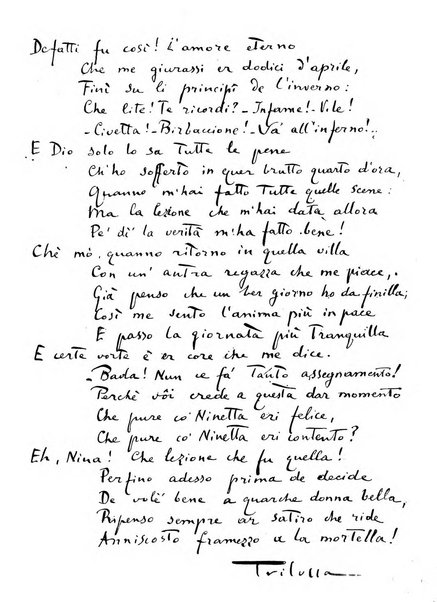 Defatti fu così! L'amore eterno
Che me giurassi er dodici d'aprile,
Finì su li principî de l'inverno:
Che lite! Te ricordi? - Infame! - Vile!
- Civetta! - Birbaccione! - Va' all'inferno!..
E Dio solo lo sa tutte le pene
Ch'ho sofferto in quer brutto quarto d'ora,
Quanno m'hai fatto tutte quelle scene:
Ma la lezione che m'hai data allora
Pe' di' la verità m'ha fatto bene!
Chè mò, quanno ritorno in quella villa
Con un' antra regazza che me piace,
Già penso che un ber giorno ho da finilla;
Così me sento l'anima più in pace
E passo la giornata più tranquilla
E certe vorte è er core che me dice.
- Bada! Nun ce fa' tanto assegnamento!
Perchè vôi crede a questa dar momento
Che pure co' Ninetta eri felice,
Che pure co' Ninetta eri contento?
Eh, Nina! Che lezione che fu quella!
Perfino adesso prima de decide
De volé bene a quarche donna bella,
Ripenso sempre ar satiro che ride
Anniscosto framezzo a la mortella!
Trilussa